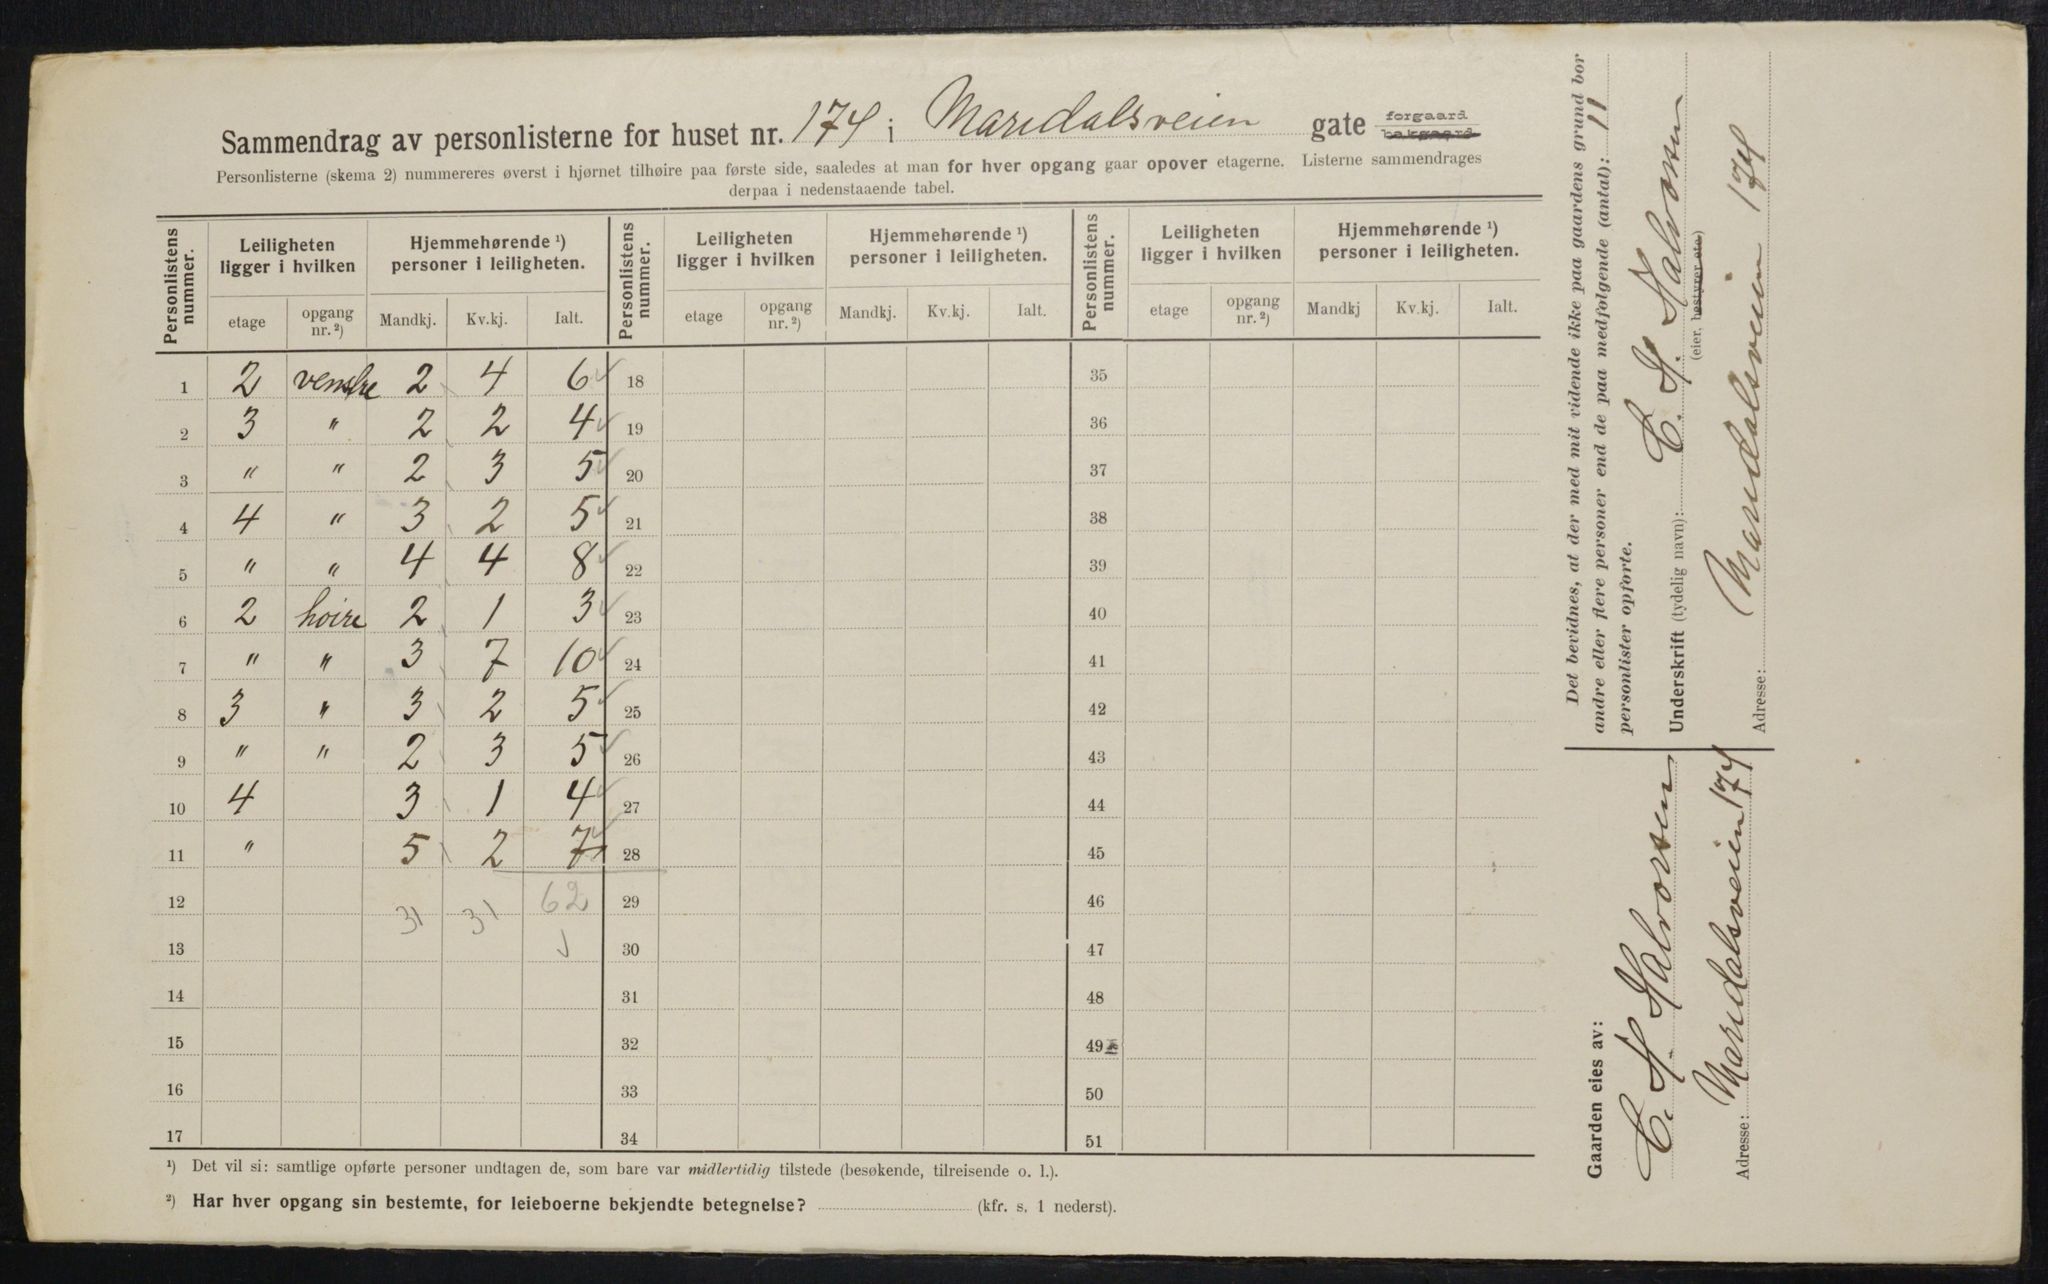 Sammendrag av personlisterne for huset nr. 174 i Maridalsveien gate forgaard bakgaard
Personlisterne (skema 2) nummereres øverst i hjørnet tilhøire paa første side, saaledes at man for hver opgang gaar opover etagerne. Listerne sammendrages
derpaa i nedenstaaende tabel.
Personlistens nummer. Leiligheten ligger i hvilken Hjemmehørende ¹) personer i leiligheten. Personlistens nummer. Leiligheten ligger i hvilken Hjemmehørende ¹) personer i leiligheten. Personlistens nummer. Leiligheten ligger i hvilken Hjemmehørende ¹) personer i leiligheten.
etage opgang nr. ²) Mandkj. Kv.kj. Ialt. etage opgang nr. ²) Mandkj. Kv.kj. Ialt. etage opgang nr. ²) Mandkj Kv.kj. Ialt.
1 2 venstre 2 4 6 18 35
2 3 " 2 2 4 19 36
3 " " 2 3 5 20 37
4 4 " 3 2 5 21 38
5 " " 4 4 8 22 39
6 2 hoire 2 1 3 23 40
7 " " 3 7 10 24 41
8 3 " 3 2 5 25 42
9 " " 2 3 5 26 43
10 4 3 1 4 27 44
11 " 5 2 7 28 45
12 31 31 62 29 46
13 30 47
14 31 48
15 32 49
16 33 50
17 34 51
¹) Det vil si: samtlige opførte personer undtagen de, som bare var midlertidig tilstede (besøkende, tilreisende o. l.).
²) Har hver opgang sin bestemte, for leieboerne bekjendte betegnelse? (kfr. s. 1 nederst).
Det bevidnes, at der med mit vidende ikke paa gaardens grund bor
andre eller flere personer end de paa medfølgende (antal): 11
personlister opførte.
Underskrift (tydelig navn): C. H. Halvorsen
(eier, bestyrer etc)
Adresse: Maridalsveien 174
Gaarden eies av:
C. H. Halvorsen
Adresse: Maridalsveien 174